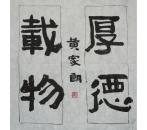 厚德
載物
黃家朗